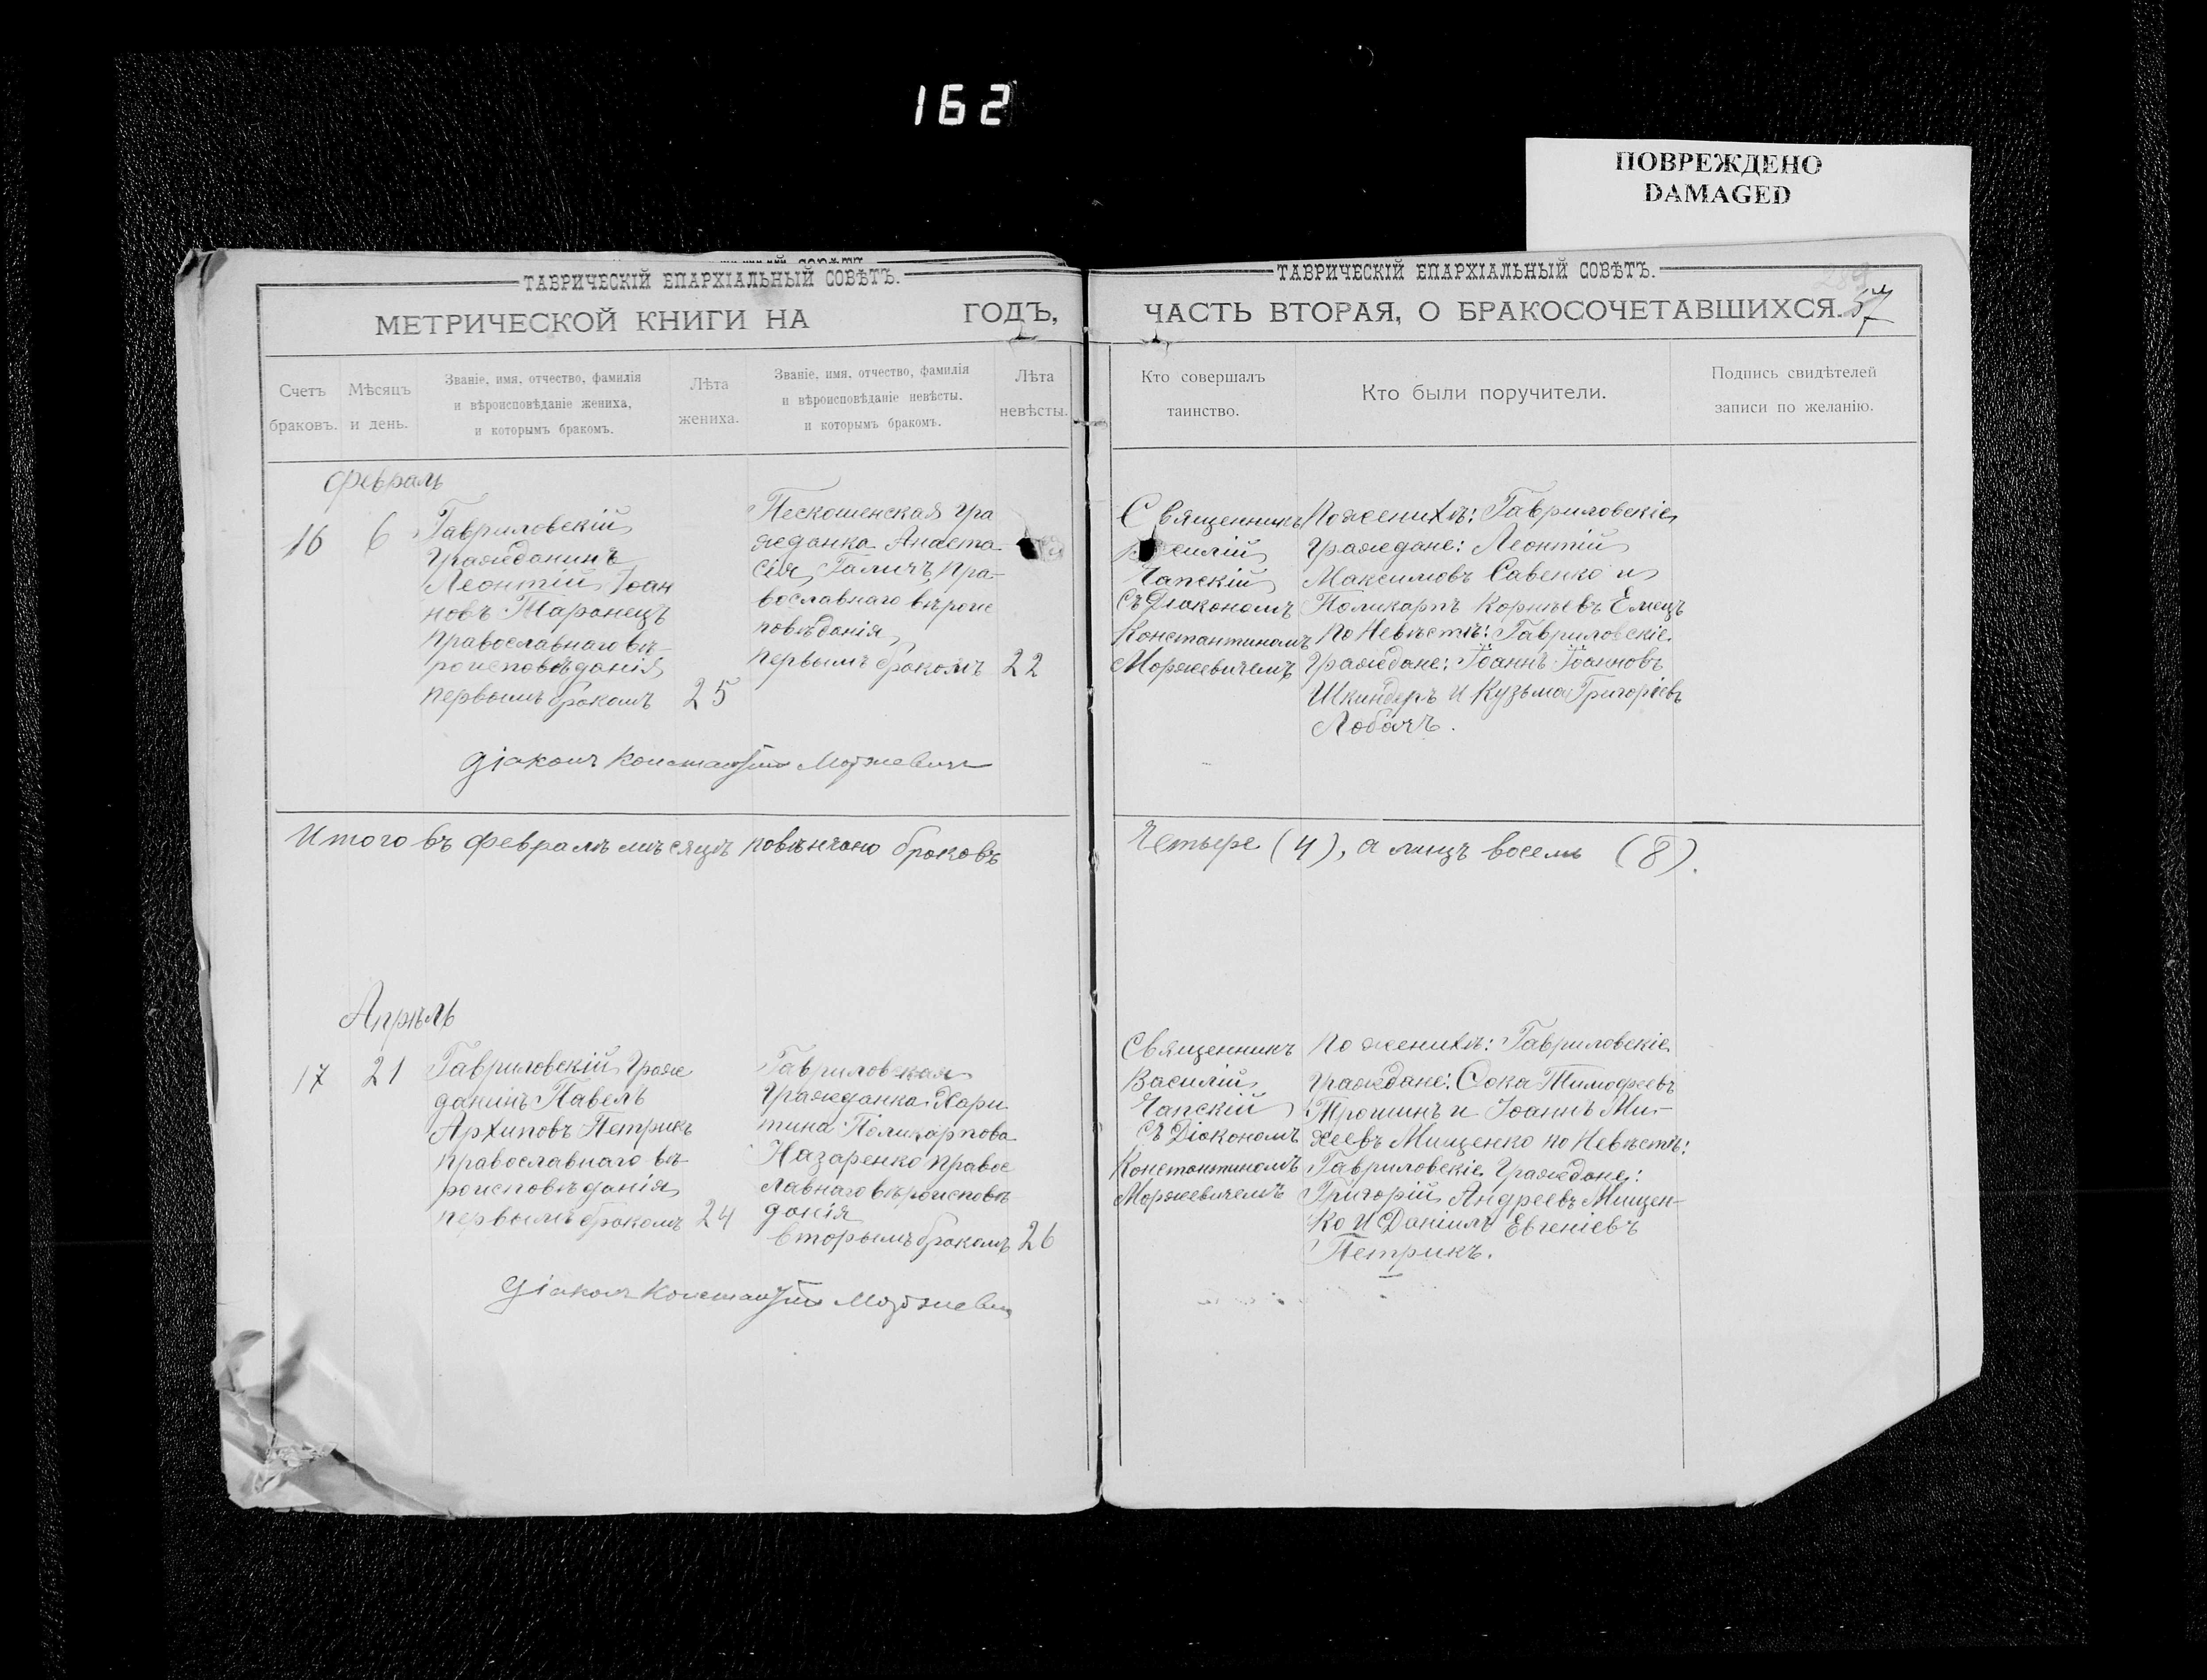 162
ПОВРЕЖДЕНО
DAMAGED
ТАВРИЧЕСКІЙ ЕПАРХІАЛЬНЫЙ СОВѢТЪ.
МЕТРИЧЕСКОЙ КНИГИ НА ГОДЪ,
Счетъ браковъ.
Мѣсяцъ и день.
Званіе, имя, отчество, фамилія
и вѣроисповѣданіе жениха,
и которымъ бракомъ.
Лѣта жениха.
Званіе, имя, отчество, фамилія
и вѣроисповѣданіе невѣсты.
и которымъ бракомъ.
Лѣта невѣсты.
Февраль
16 6
Гавриловскій
Гражданинъ
Леонтій Іоан
новъ Таранецъ
православнаго вѣ-
роисповѣданія
первымъ бракомъ 25
Пескошенская гра
жданка Анаста
сія Галичъ, пра-
вославнаго вѣроис
повѣданія,
первымъ бракомъ 22
Діаконъ Константинъ Моржевичъ
Итого въ февралѣ мѣсяцѣ повѣнчано браковъ
Апрѣль
17 21
Гавриловскій Граж
данинъ Павелъ
Архиповъ Петрикъ
православнаго вѣ-
роисповѣданія
первымъ бракомъ 24
Гавриловская
Гражданка Хари
тина Поликарпова
Назаренко правос
лавнаго вѣроисповѣ
данія
вторымъ бракомъ 26
Діаконъ Константинъ Моржевичъ
ТАВРИЧЕСКІЙ ЕПАРХІАЛЬНЫЙ СОВѢТЪ.
ЧАСТЬ ВТОРАЯ, О БРАКОСОЧЕТАВШИХСЯ.
57
Кто совершалъ
таинство.
Кто были поручители.
Подпись свидѣтелей
записи по желанію.
Священникъ
силій
Чапскій
съ Діакономъ
Константиномъ
Моржевичемъ
По женихѣ: Гавриловскіе
граждане: Леонтій
Максимовъ Савенко и
Поликарпъ Корнѣевъ Емецъ
по Невѣстѣ: Гавриловскіе
Граждане: Іоаннъ Іоанновъ
Шкиндеръ и Кузьма Григоріевъ
Лобачъ.
Четыре (4), а лицъ восемь (8).
Священникъ
Василій
Чапскій
съ Діакономъ
Константиномъ
Моржевичемъ
По женихѣ: Гавриловскіе
граждане: Фока Тимофеевъ
Трошинъ и Іоаннъ Ми-
хеевъ Мищенко по Невѣстѣ:
Гавриловскіе Граждане:
Григорій Андреевъ Мищен-
ко и Даніилъ Евгеніевъ
Петрикъ.